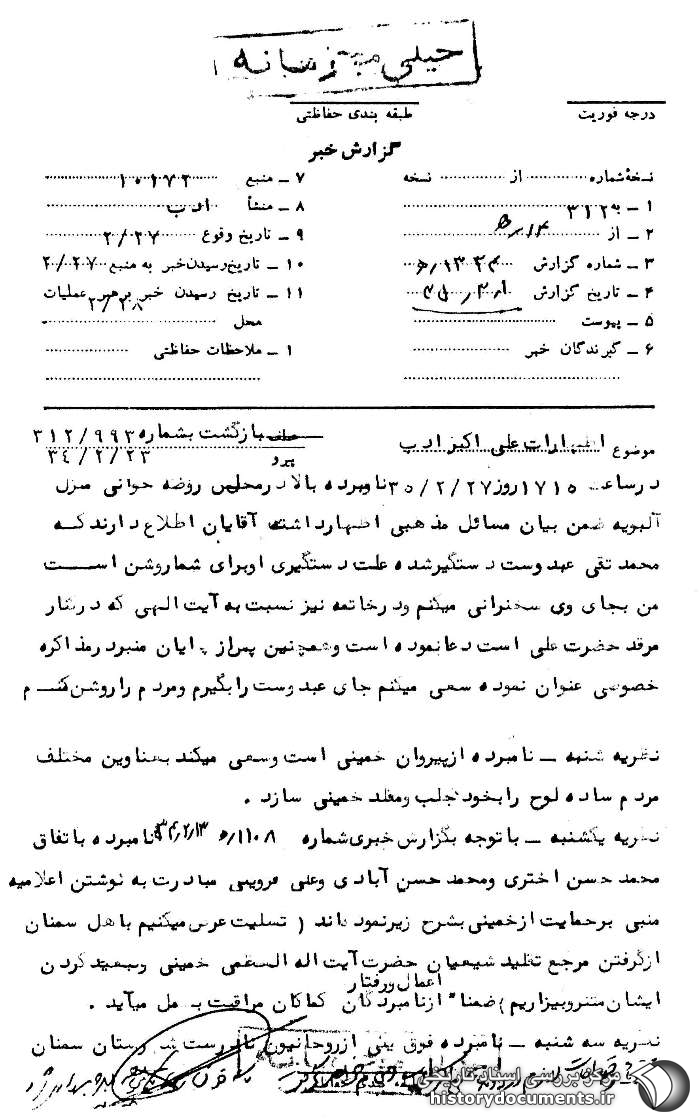 خیلی محرمانه
درجه فوریت
طبقه بندی حفاظتی
گزارش خبر
نسخهٔ شماره از نسخه
۱ ـ به ۳۱۲
۲ ـ از ۱۴ ه
۳ ـ شماره گزارش
۴ ـ تاریخ گزارش
۵ ـ پیوست
۶ ـ گیرندگان خبر
۷ ـ منبع ۱۰۱۷۲
۸ ـ منشأ ادب
۹ ـ تاریخ وقوع ۲/۲۷
۱۰ ـ تاریخ رسیدن خبر به منبع ۲/۲۷
۱۱ ـ تاریخ رسیدن خبر برهبر عملیات ۲/۲۸
محل
۱ ـ ملاحظات حفاظتی
موضوع اظهارات علی اکبر ادب
بازگشت بشماره ۳۱۲/۹۹۳
پیرو ۳۴/۲/۲۳
در ساعت ۱۷۱۵ روز ۳۵/۲/۲۷ نامبرده بالا در مجلس روضه خوانی منزل
آلبویه ضمن بیان مسائل مذهبی اظهار داشت آقایان اطلاع دارند که
محمد تقی عبد وست دستگیر شده علت دستگیری او برای شما روشن است
من بجای وی سخنرانی میکنم ودر خاتمه نیز نسبت به آیت الهی که در کنار
مرقد حضرت علی است دعا نموده است وهمچنین پس از پایان منبر در مذاکره
خصوصی عنوان نموده سعی میکنم جای عبد وست را بگیرم ومردم را روشن کنم
نظریه شنبه ـ نامبرده از پیروان خمینی است وسعی میکند بعناوین مختلف
مردم ساده لوح را بخود جلب ومقلد خمینی سازد .
نظریه یکشنبه ـ با توجه بگزارش خبری شماره ۱۱۰۸/ه ۳۴/۲/۱۳ نامبرده باتفاق
محمد حسن اختری ومحمد حسن آبادی وعلی مبادرت به نوشتن اعلامیه
مبنی بر حمایت از خمینی بشرح زیر نموده اند ( تسلیت عرض میکنیم باهل سمنان
از گرفتن مرجع تقلید شیعیان حضرت آیت اله العظمی خمینی وتبعید کردن
ایشان متنفر وبیزاریم ) ضمنا" از اعمال ورفتار نامبردگان کماکان مراقبت بعمل میآید .
نظریه سه شنبه ـ نامبرده فوق یکی از روحانیون شهرستان سمنان
مرکز بررسی اسناد تاریخی
historydocuments.ir